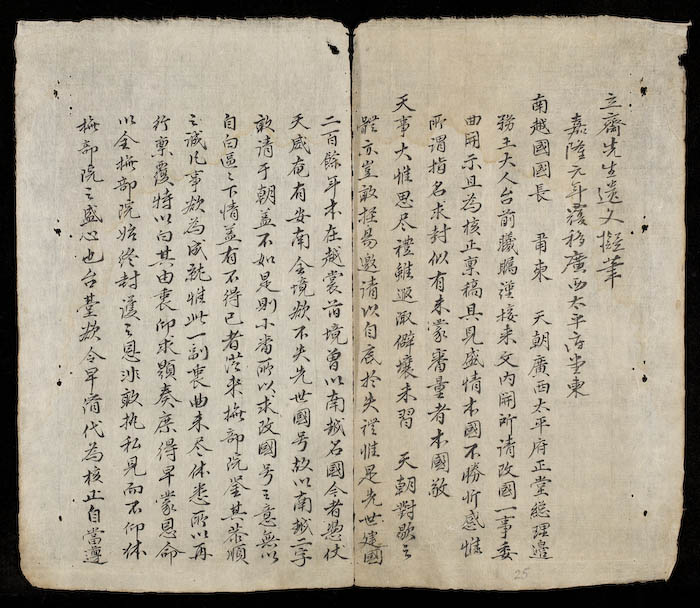 立齋先生遺文擬筆
嘉隆元年復移廣西太平府堂柬
南越國國長 肅柬 天朝廣西太平府正堂總理邊
務王大人台前謹接来文內開所請改國一事委
曲開示且為核正禀稿具見盛情本國不勝忻感惟
所謂指名求封似有未蒙審量者本國敬
天事大惟思尽禮雖遐陬僻壤未習 天朝對之
體亦豈敢輕易邀請以自底扵失禮惟是先世建國
二百餘年末在越裳前境曽以南越名國今者憑仗
天威奄有安南全境欲不失先世國号故以南越二字
敢請于朝蓋不如是則小番所以求改國号之意無以
自白區〻下情蓋有不得已者来撫部院鑒其恭順
之誠凢事欲為成就惟此一副衷曲未尽体悉所以再
行禀覆特以白其由衷仰求題奏庶得早蒙恩命
以全撫部院始终封護之恩非敢执私見而不仰体
撫部院之盛心也台臺欲令早代為核正自當遵
25